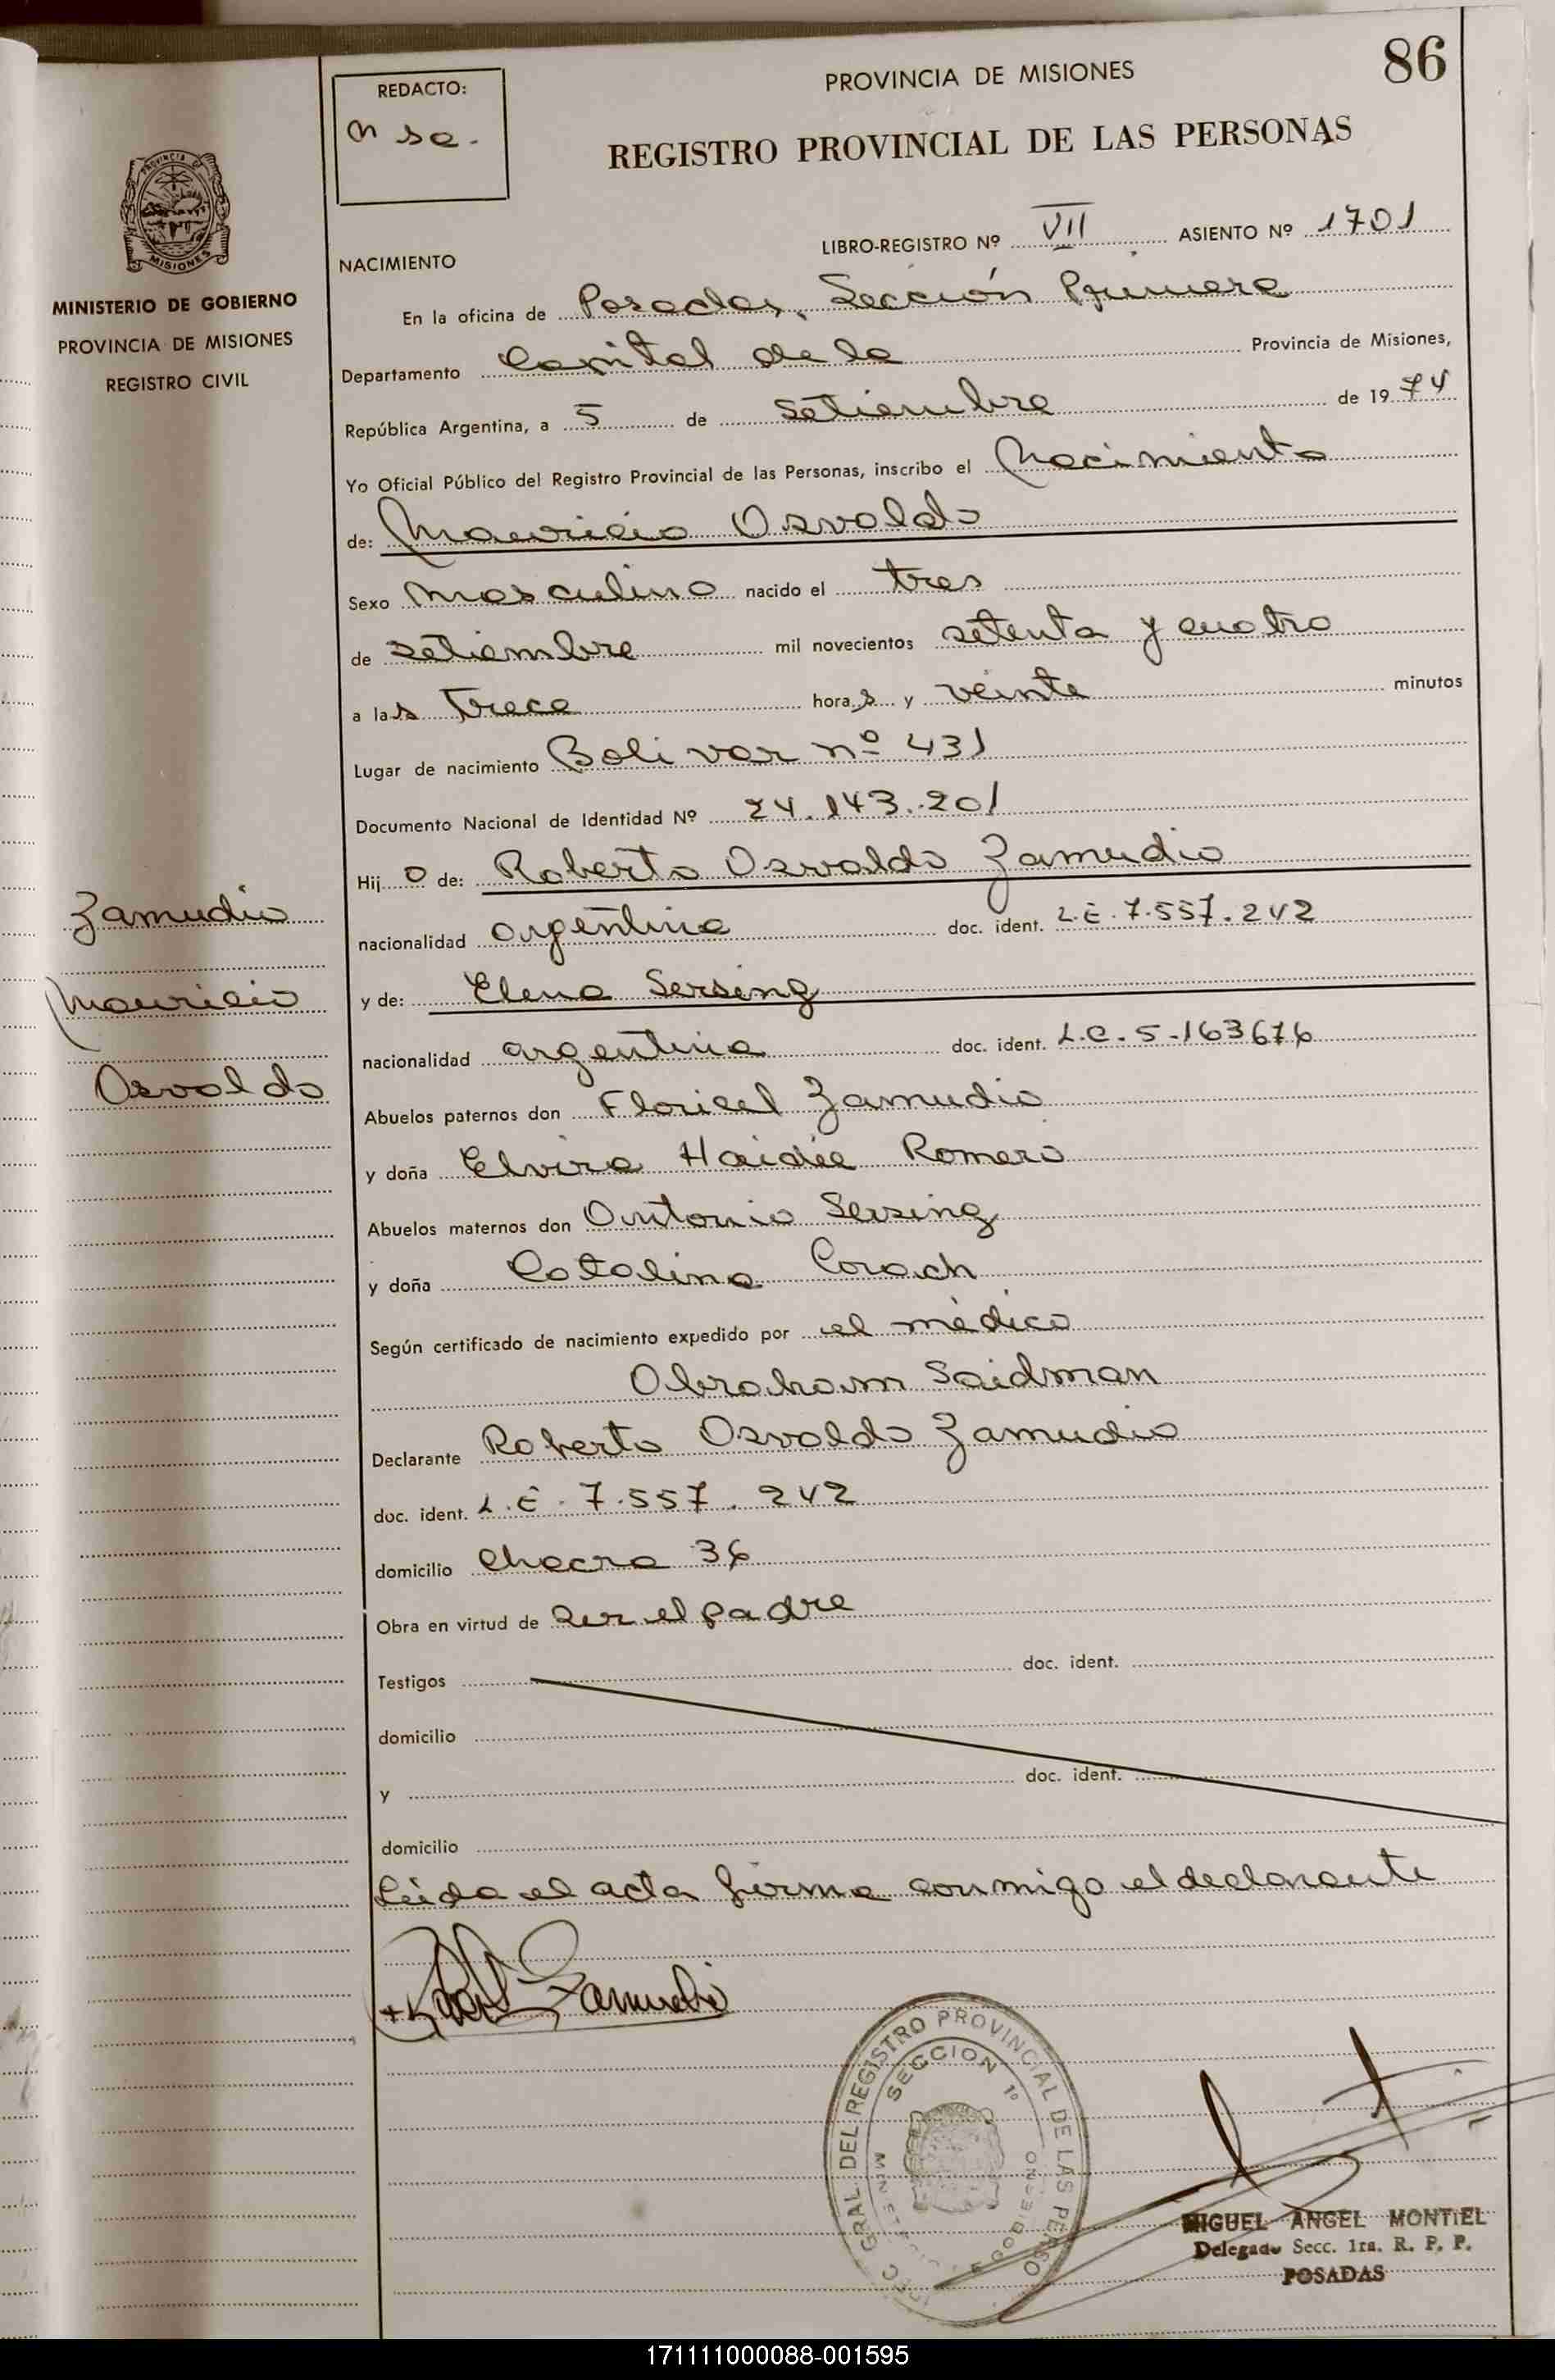 86
REDACTO:
PROVINCIA DE MISIONES
REGISTRO PROVINCIAL DE LAS PERSONAS
PROVINCIA DE
MISIONES
MINISTERIO DE GOBIERNO
PROVINCIA DE MISIONES
REGISTRO CIVIL
LIBRO-REGISTRO Nº VII ASIENTO Nº 1701
NACIMIENTO
En la oficina de Posadas, Sección Primera
Departamento Capital de la Provincia de Misiones,
República Argentina, a 5 de Setiembre de 1974
Yo Oficial Público del Registro Provincial de las Personas, inscribo el Nacimiento
de: Mauricio Osvaldo
Sexo masculino nacido el tres
de setiembre mil novecientos setenta y cuatro
a las trece horas y veinte minutos
Lugar de nacimiento Bolivar nº 431
Documento Nacional de Identidad Nº 24.143.201
Hijo de: Roberto Osvaldo Zamudio
nacionalidad argentina doc. ident. L.E. 7.557.242
y de: Elena Sersing
nacionalidad argentina doc. ident. L.C. 5.163676
Abuelos paternos don Floricel Zamudio
y doña Elvira Haidée Romero
Abuelos maternos don Antonio Sersing
y doña Catalina Corach
Según certificado de nacimiento expedido por el médico
Abraham Saidman
Declarante Roberto Osvaldo Zamudio
doc. ident. L.E. 7.557.242
domicilio Chacra 36
Obra en virtud de ser el padre
Testigos doc. ident.
domicilio
y doc. ident.
domicilio
Leída el acta firma conmigo el declarante
Zamudio
Mauricio
Osvaldo
Zamudio
GRAL. DEL REGISTRO PROVINCIAL DE LAS PERSO
SECCION 1º
MIGUEL ANGEL MONTIEL
Delegado Secc. 1ra. R. P. P.
POSADAS
171111000088-001595